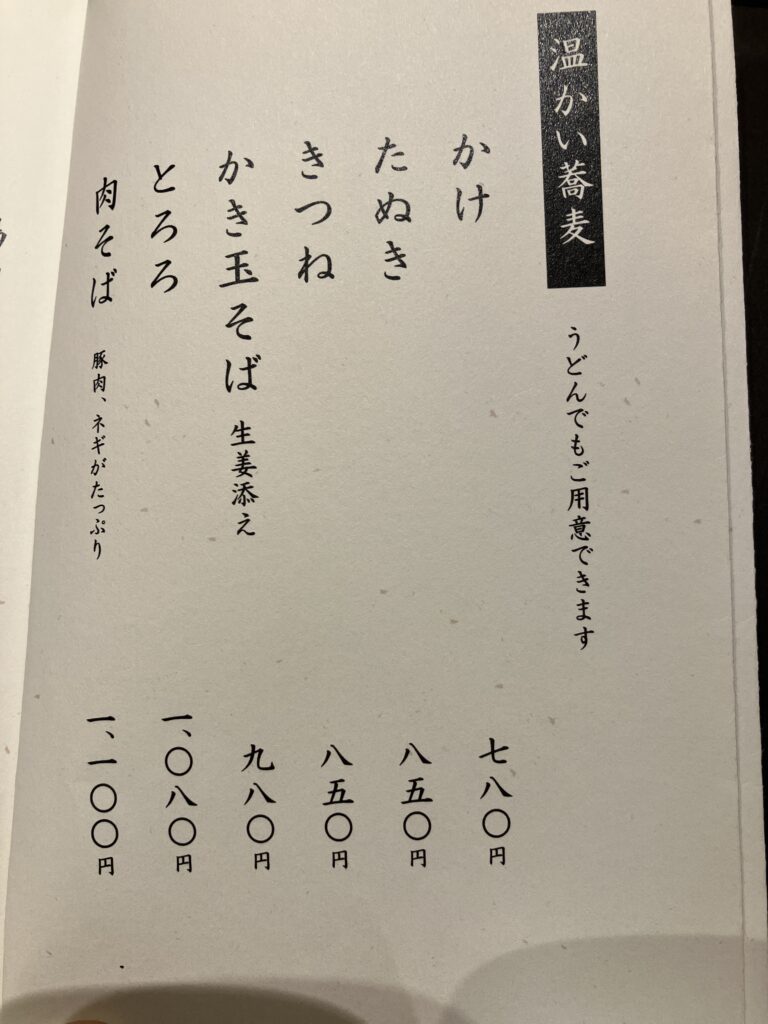 温かい蕎麦 うどんでもご用意できます
かけ 七八〇円
たぬき 八五〇円
きつね 八五〇円
かき玉そば 生姜添え 九八〇円
とろろ 一、〇八〇円
肉そば 豚肉、ネギがたっぷり 一、一〇〇円